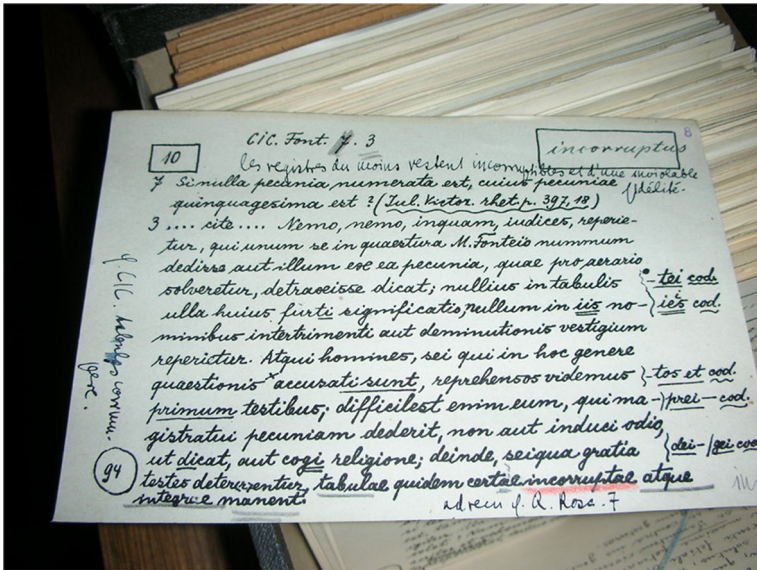 CIC. Font. 7. 3
8
10
incorruptus
les registres du moins restent incorruptibles et d'une inviolable
fidélité.
7 Si nulla pecunia numerata est, cuius pecuniae
quinquagesima est? (Iul. Victor. rhet. p. 397, 18)
3 .... cite .... Nemo, nemo, inquam, iudices, reperie-
tur, qui unum se in quaestura M. Fonteio nummum
dedisse aut illum ex ea pecunia, quae pro aerario
solveretur, detraxisse dicat; nullius in tabulis
-tei cod.
ulla huius furti significatio, nullum in iis no-
ieis cod.
minibus intertrimenti aut deminutionis vestigium
reperietur. Atqui homines, sei qui in hoc genere
quaestionis accusati sunt, reprehensos videmus
-tos et cod.
primum testibus; difficilest enim eum, qui ma-
prei- cod.
gistratui pecuniam dederit, non aut induci odio,
ut dicat, aut cogi religione; deinde, sei qua gratia
dei- / gei cod
testes deterrentur, tabulae quidem certae incorruptae atque
integrae manent
ad rem cf. Q. Rosc. 7
cf. CIC. tabulas corrum-
pere.
94